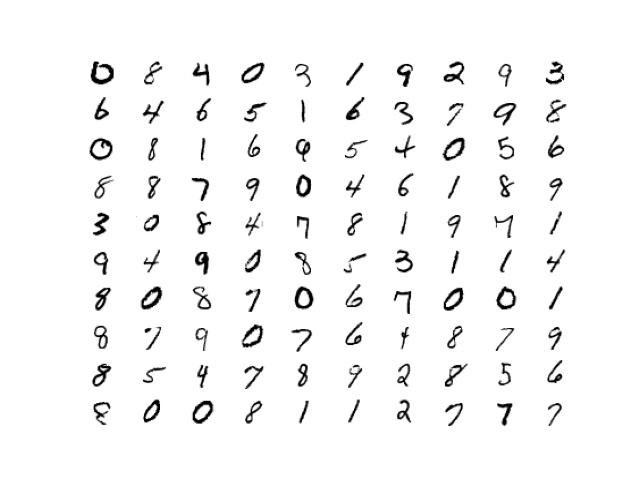 0 8 4 0 3 1 9 2 9 3
6 4 6 5 1 6 3 7 9 8
0 8 1 6 9 5 4 0 5 6
8 8 7 9 0 4 6 1 8 9
3 0 8 4 7 8 1 9 7 1
9 4 9 0 8 5 3 1 1 4
8 0 8 7 0 6 7 0 0 1
8 7 9 0 7 6 4 8 7 9
8 5 4 7 8 9 2 8 5 6
8 0 0 8 1 1 2 7 7 7